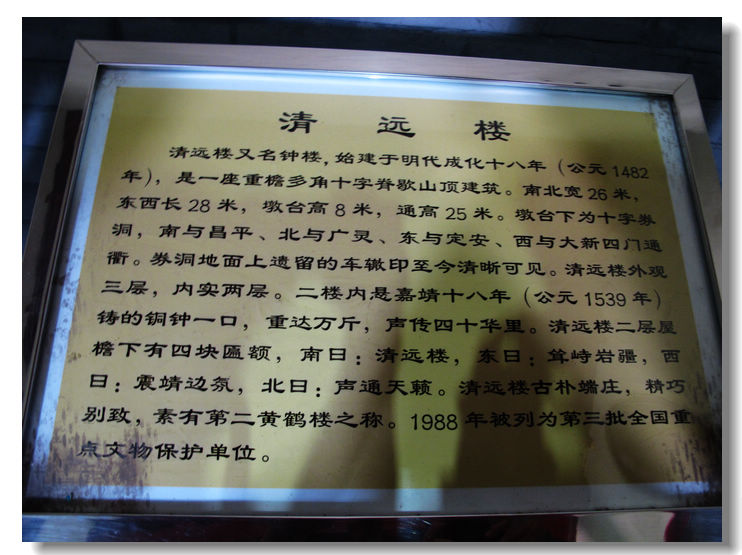 清 远 楼
清远楼又名钟楼，始建于明代成化十八年（公元1482
年），是一座重檐多角十字脊歇山顶建筑。南北宽26米，
东西长28米，墩台高8米，通高25米。墩台下为十字券
洞，南与昌平、北与广灵、东与定安、西与大新四门通
衢。券洞地面上遗留的车辙印至今清晰可见。清远楼外观
三层，内实两层。二楼内悬嘉靖十八年（公元1539年）
铸的铜钟一口，重达万斤，声传四十华里。清远楼二层屋
檐下有四块匾额，南曰：清远楼，东曰：耸峙岩疆，西
曰：震靖边氛，北曰：声通天籁。清远楼古朴端庄，精巧
别致，素有第二黄鹤楼之称。1988年被列为第三批全国重
点文物保护单位。